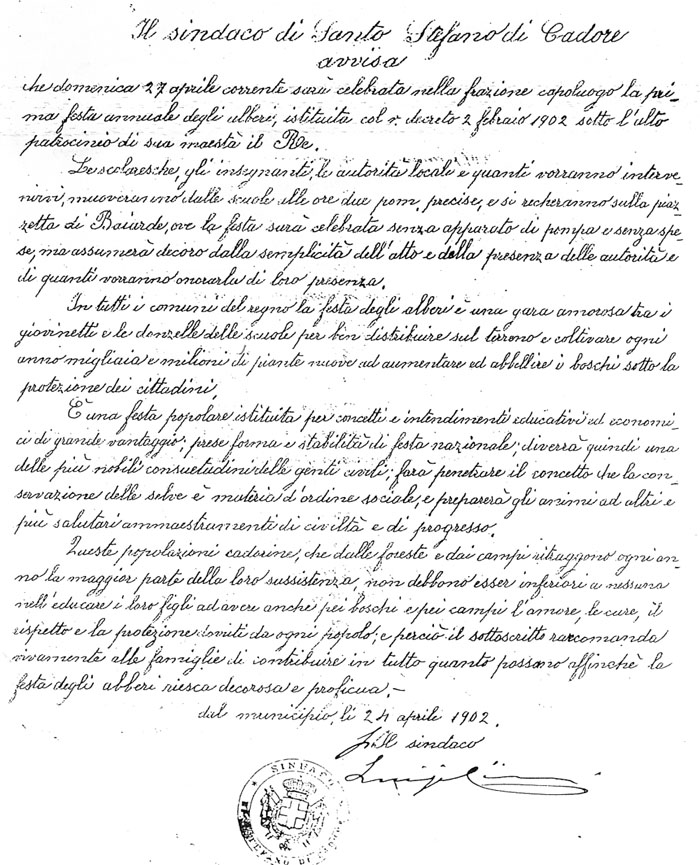 Il sindaco di Santo Stefano di Cadore
avvisa
che domenica 27 aprile corrente sarà celebrata nella frazione capoluogo la pri-
ma festa annuale degli alberi, istituita col r. decreto 2 febraio 1902 sotto l'alto
patrocinio di sua maestà il Re.
Le scolaresche, gli insegnanti, le autorità locali e quanti vorranno interve-
nirvi, muoveranno dalle scuole alle ore due pom. precise, e si recheranno sulla piaz-
zetta di Baiarde, ove la festa sarà celebrata senza apparato di pompa e senza spe-
se, ma assumerà decoro dalla semplicità dell'atto e della presenza delle autorità e
di quanti vorranno onorarla di loro presenza.
In tutti i comuni del regno la festa degli alberi è una gara amorosa tra i
giovinetti e le donzelle delle scuole per ben distribuire sul terreno e coltivare ogni
anno migliaia e milioni di piante nuove ad aumentare ed abbellire i boschi sotto la
protezione dei cittadini,
È una festa popolare istituita per concetti e intendimenti educativi ed economi-
ci di grande vantaggio; prese forma e stabilità di festa nazionale; diverrà quindi una
delle più nobili consuetudini delle genti civili; farà penetrare il concetto che la con-
servazione delle selve è materia d'ordine sociale, e preparerà gli animi ad altri e
più salutari ammaestramenti di civiltà e di progresso.
Queste popolazioni cadorine, che dalle foreste e dai campi ritraggono ogni an-
no la maggior parte della loro sussistenza, non debbono esser inferiori a nessuna
nell'educare i loro figli ad avere anche pei boschi e pei campi l'amore, le cure, il
rispetto e la protezione dovuti da ogni popolo; e perciò il sottoscritto raccomanda
vivamente alle famiglie di contribuire in tutto quanto possono affinchè la
festa degli alberi riesca decorosa e proficua.-
dal municipio, li 24 aprile 1902.
Il sindaco
Luigi
SINDACO